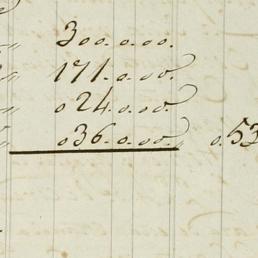 " 300.0.00.
" 171.0.00.
" 024.0.00.
" 036.0.00. " 0.53